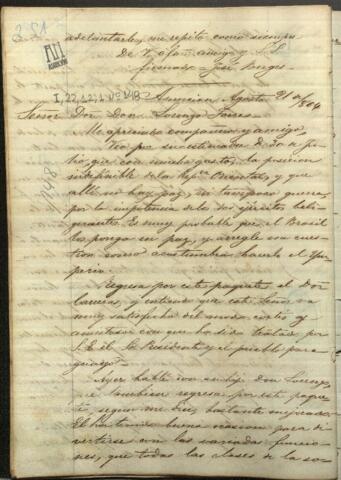 adelantarle, me repito como siempre
De V. affmo. amigo y S. S.
firmado = José Berges
I, 22, 12, 1 Nº 148
Asuncion, Agosto 21 de 1864
Señor Dor Don Lorenzo Torres
Mi apreciado compatriota y amigo,
Veo por su estimada de 30 de Ju-
lio, que con mucho gusto, la posicion
indefinible de la Repca Oriental, y que
alli no hay paz, ni tampoco guerra,
por la impotencia de los dos ejércitos beli-
gerantes. Es muy probable que el Brasil
los ponga en paz, y arregle esa cues-
tion como acostumbra hacerlo el Im-
perio.
Regresa por este paquete el Dor
Carreras, y entiendo que este Señor va
muy satisfecho del modo cortés y
amistoso con que ha sido tratado por
S. E. el Sr Presidente y el pueblo para-
guayo.
Ayer hablé con su hijo Don Lorenzo,
que tambien regresa por este paque-
te, segun me dijo, bastante mejorado.
El ha tenido buena ocasion para di-
vertirse con las variadas funcio-
nes, que todas las clases de la so-